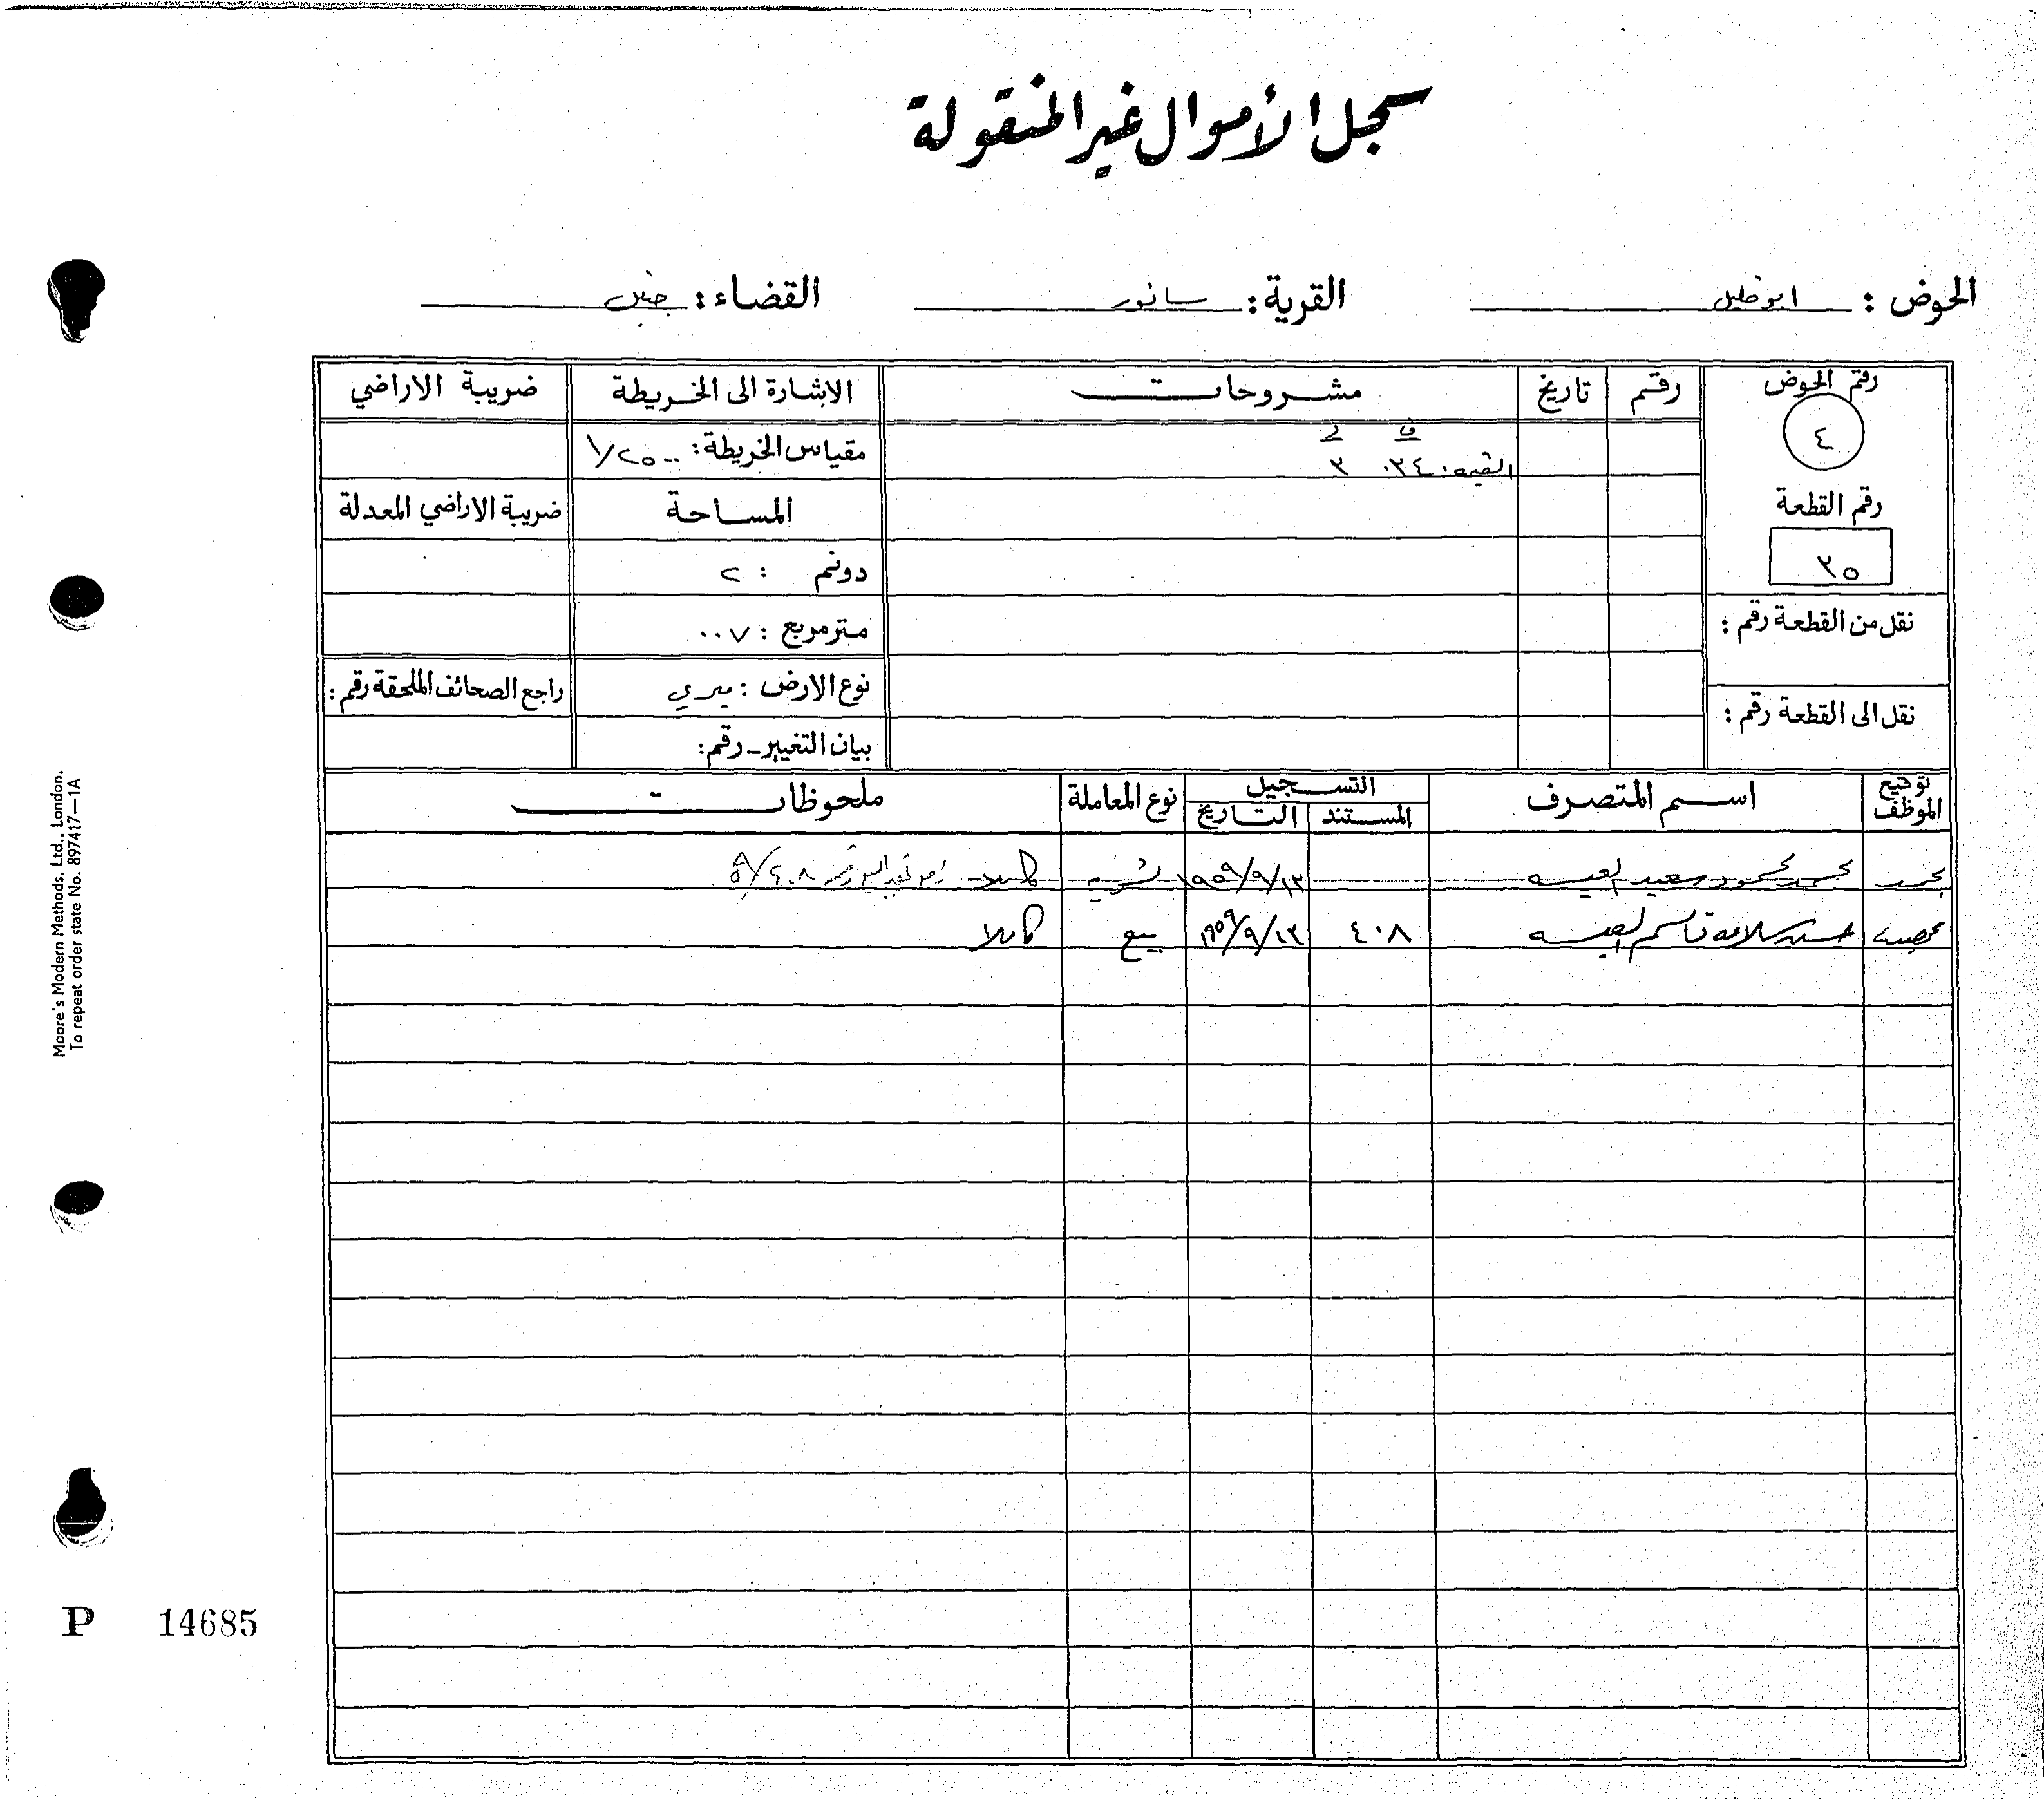 سجل الأموال غير المنقولة
الحوض : ابو خليل القرية : سانور القضاء : جنين
رقم الحوض رقم تاريخ مشروحات الاشارة الى الخريطة ضريبة الاراضي
٤
ف د
القيمه ٠٣٤ ٣
مقياس الخريطة : ١/٢٥٠٠
رقم القطعة المساحة ضريبة الاراضي المعدلة
٣٥
دونم : ٢
نقل من القطعة رقم :
متر مربع : ٠٠٧
نوع الارض : ميري راجع الصحائف الملحقة رقم :
نقل الى القطعة رقم :
بيان التغيير - رقم :
توقيع الموظف اسم المتصرف التسجيل نوع المعاملة ملحوظات
المستند التاريخ
محمد محمود سعيد العيسه ١٩٥٩/٩/١٣ تسويه كاملا
حسن سلامه قاسم العيسه ٤٠٨ ٩٥٩/٩/١٣ بيع كاملا
Moore's Modern Methods, Ltd., London.
To repeat order state No. 897417—1A
P 14685